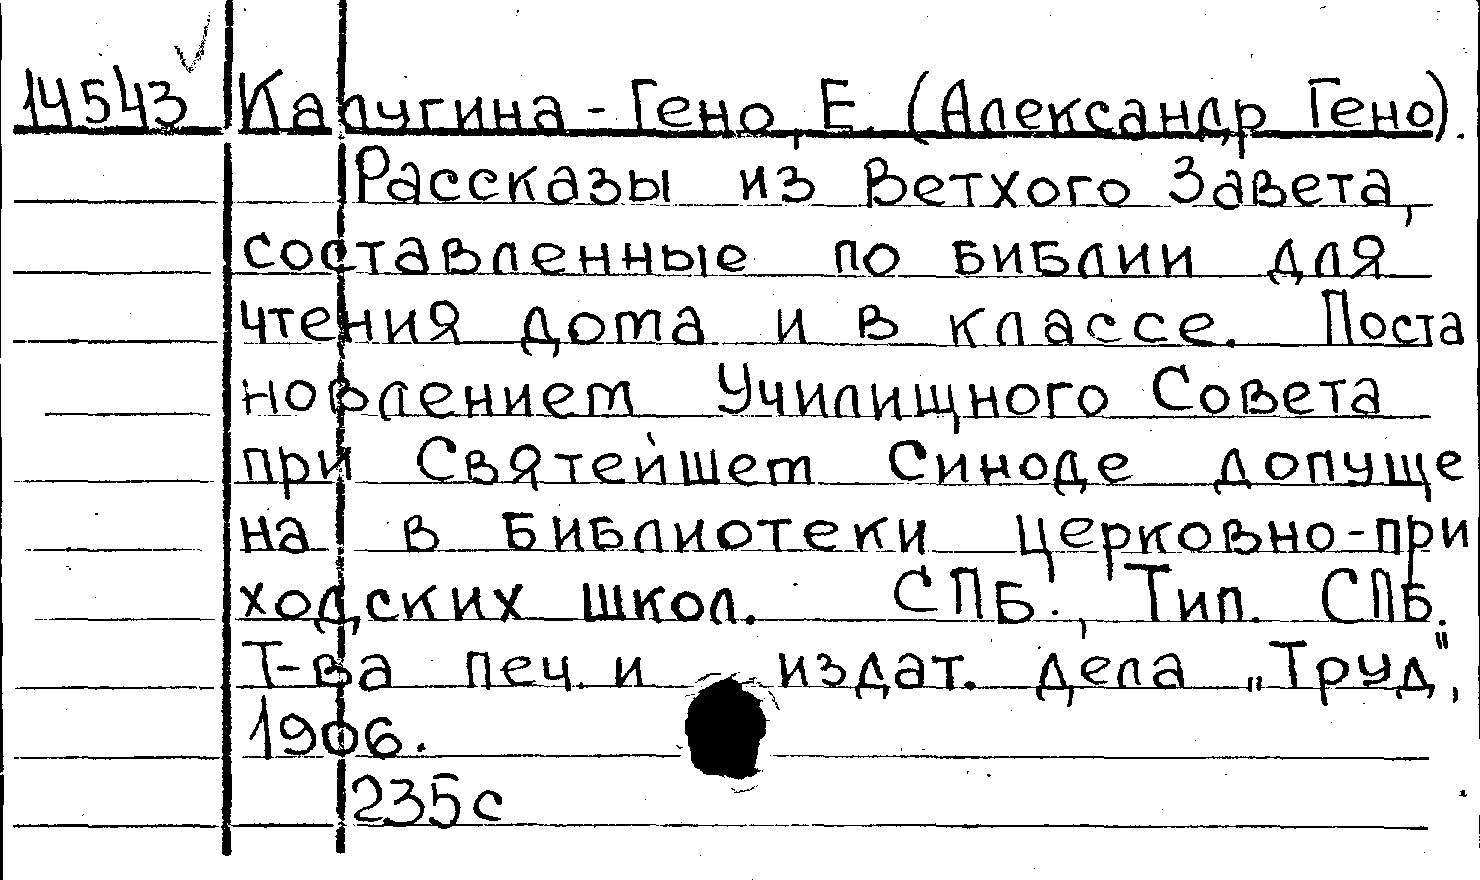 14543 Калугина-Гено, Е. (Александр Гено).
Рассказы из Ветхого Завета,
составленные по Библии для
чтения дома и в классе. Поста
новлением Училищного Совета
при Святейшем Синоде допуще
на в библиотеки церковно-при
ходских школ. СПБ., Тип. СПБ.
Т-ва печ. и издат. дела „Труд",
1906.
235с